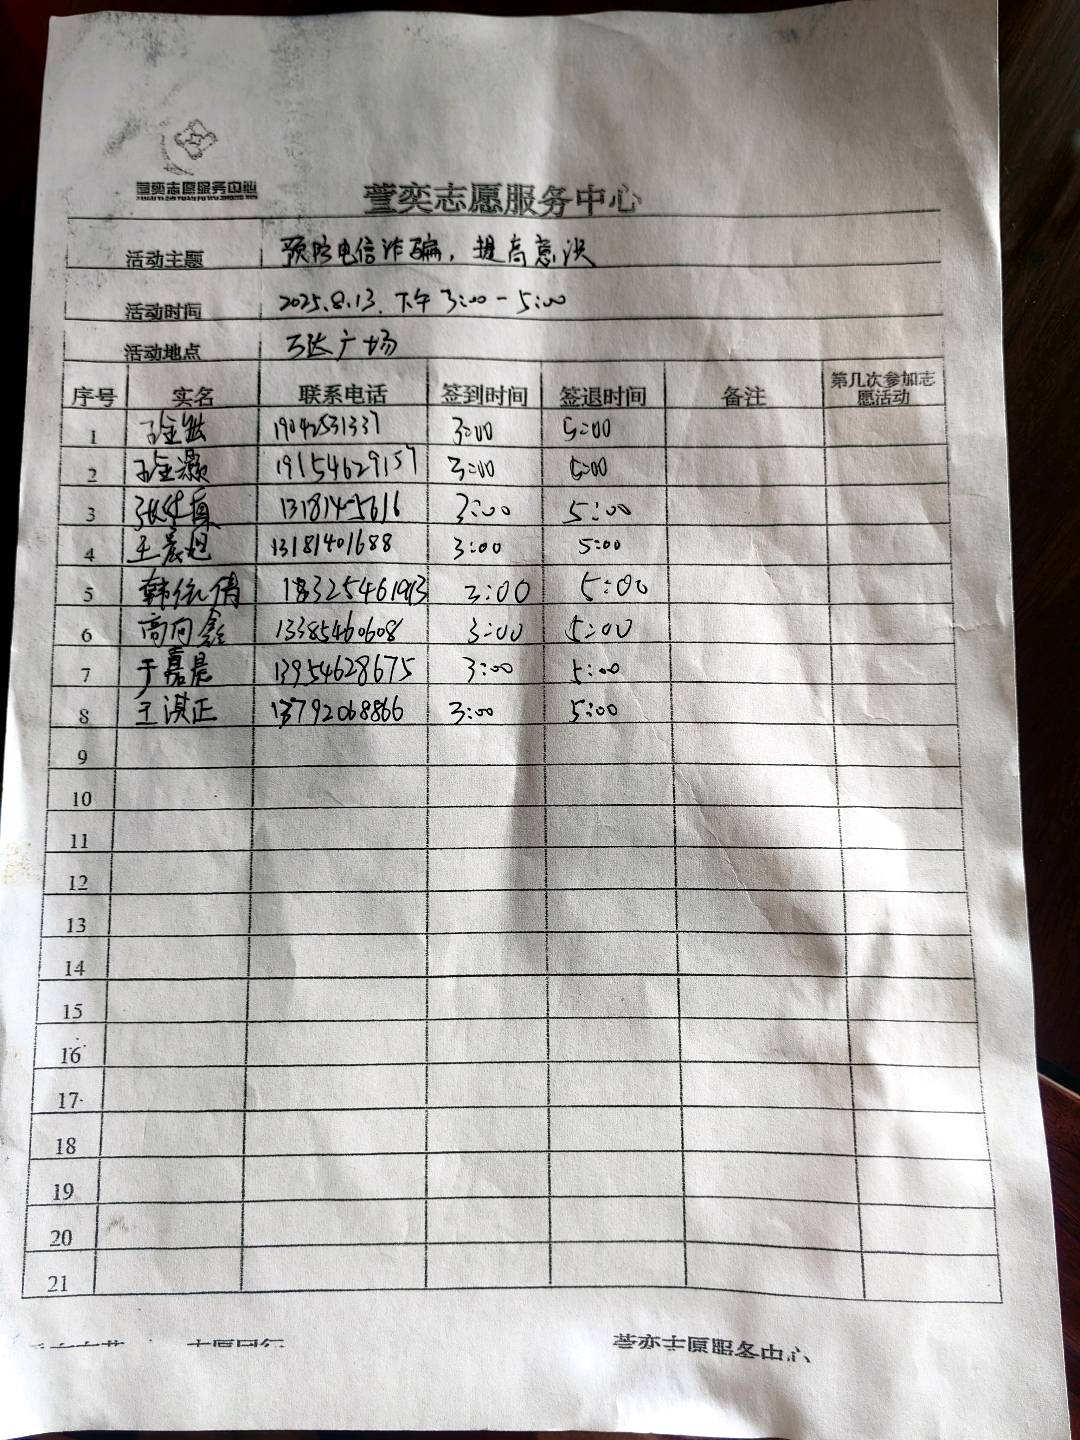 萱奕志愿服务中心
萱奕志愿服务中心
活动主题 预防电信诈骗，提高意识
活动时间 2025.8.13.下午 3:00-5:00
活动地点 万达广场
序号 实名 联系电话 签到时间 签退时间 备注 第几次参加志愿活动
1 19042531337 3:00 5:00
2 19154629157 3:00 5:00
3 3:00 5:00
4 王晨旭 13181401688 3:00 5:00
5 韩依倩 3:00 5:00
6 高向鑫 13385460608 3:00 5:00
7 于嘉晨 13954628675 3:00 5:00
8 王淇正 13792068866 3:00 5:00
9
10
11
12
13
14
15
16
17
18
19
20
21
志愿同行 萱奕志愿服务中心